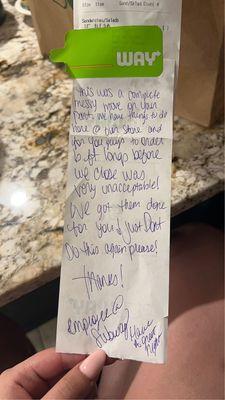 Item Item
Sandwiches/Salads
WAY
This was a complete
messy move on your
part, we have things to do
here @ our store and
for you guys to order
6 ft longs before
we close was
very unacceptable!
We got them done
for you & Just Dont
Do this again please!
Thanks!
employee @
Subway
Have
a great
night